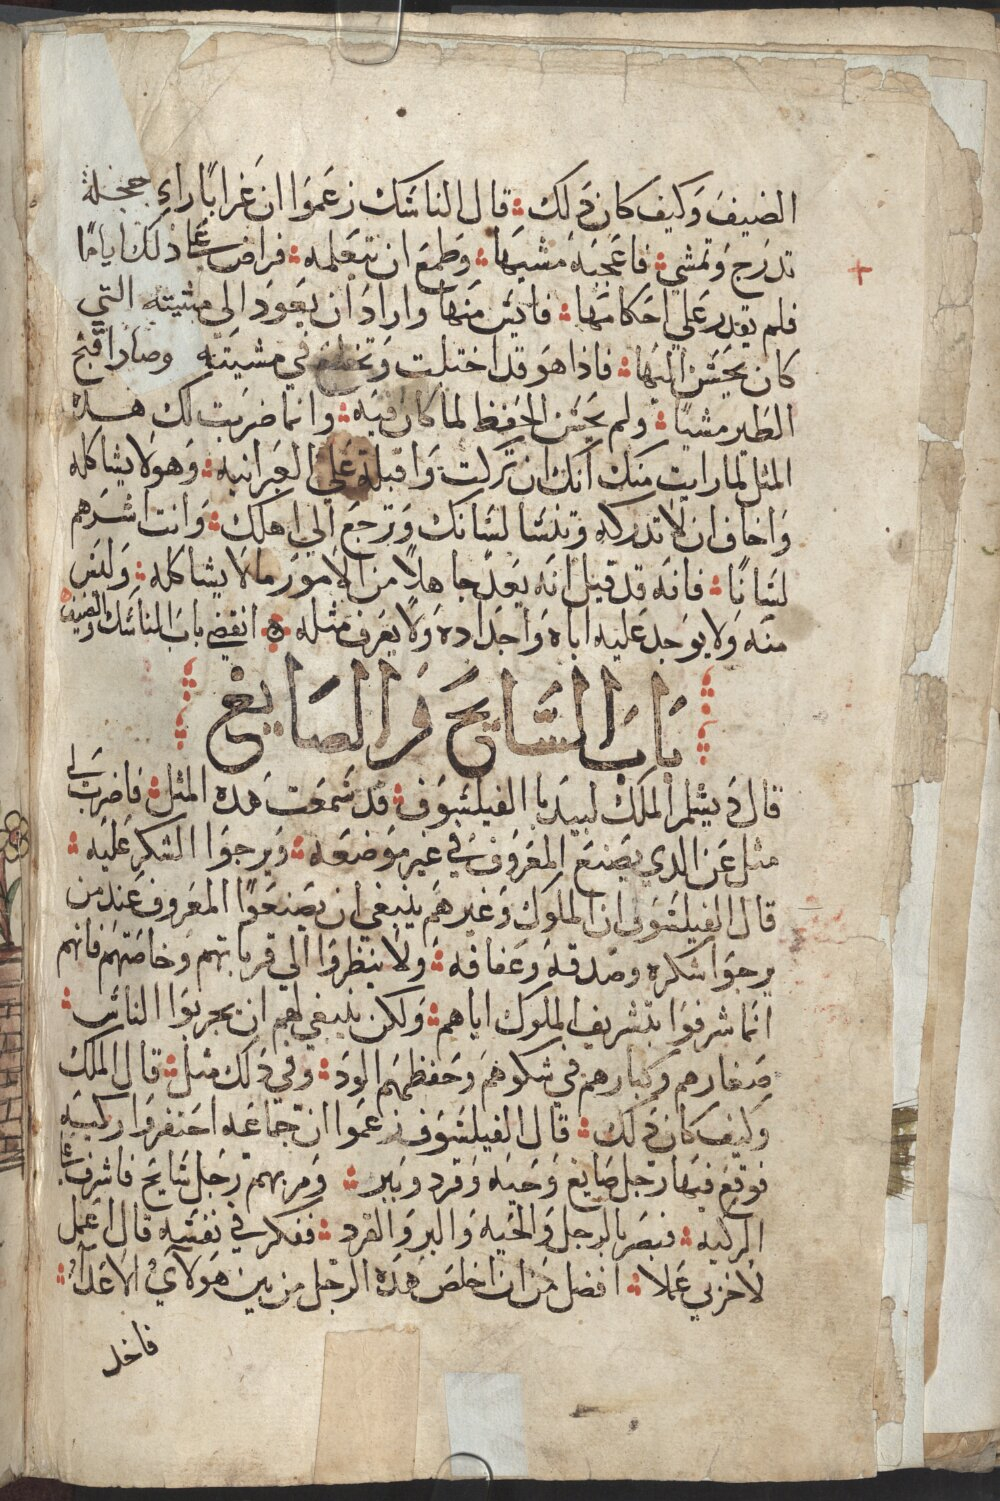 الضيف وكيف كان ذلك قال الناسك زعموا ان غرابًا راي حجلة
تدرج وتمشي فاعجبه مشيها وطمع ان يتعلمه فراض علي ذلك اياما
فلم يقدر علي احكامها فايس منها واراد ان يعود الي مشيته التي
كان يحسن اليها فاذا هو قد اختلت وتخلع في مشيته وصار اقبح
الطير مشيًا ولم يحسن الحفظ لما كان فيه وانما ضربت لك هدا
المثل لما رايت منك انك ان تركت واقبلة علي العبرانيه وهو لا يشاكله
واخاف ان لا تدركه وتنسا لسانك وترجع الي اهلك وانت اشرهم
لسانًا فانه قد قيل انه يعد جاهلًا من الامور ما لا يشاكله وليس
منه ولا يوجد عليه اباه واجداده ولا يعرف مثله انقضي باب الناسك والضيف
باب السايح والصايغ
قال ديشلم الملك لبيدبا الفيلسوف قد سمعت هده المثل فاضرب لي
مثل عن الدي يصنع المعروف في غير موضعه ويرجوا الشكر عليه
قال الفيلسوف ان الملوك وغيرهم ينبغي ان يصنعوا المعروف عند من
يرجوا شكره وصدقه وعفافه ولا ينظروا الي قرباتهم وخاصتهم فانهم
انما شرفوا بتشريف الملوك اياهم ولكن ينبغي لهم ان يجربوا الناس
صغارهم وكبارهم في شكوهم وحفظهم الود وفي ذلك مثل قال الملك
وكيف كان ذلك قال الفيلسوف زعموا ان جماعه احتفروا ركيه
فوقع فيها رجل صايغ وحيه وقرد وببر ومر بهم رجل سايح فاشرف علي
الركيه فبصر بالرجل والحيه والببر والقرد ففكر في نفسه قال اعمل
لاخرتي عملا افضل من ان اخلص هده الرجل من بين هولاي الاعداء
فاخد